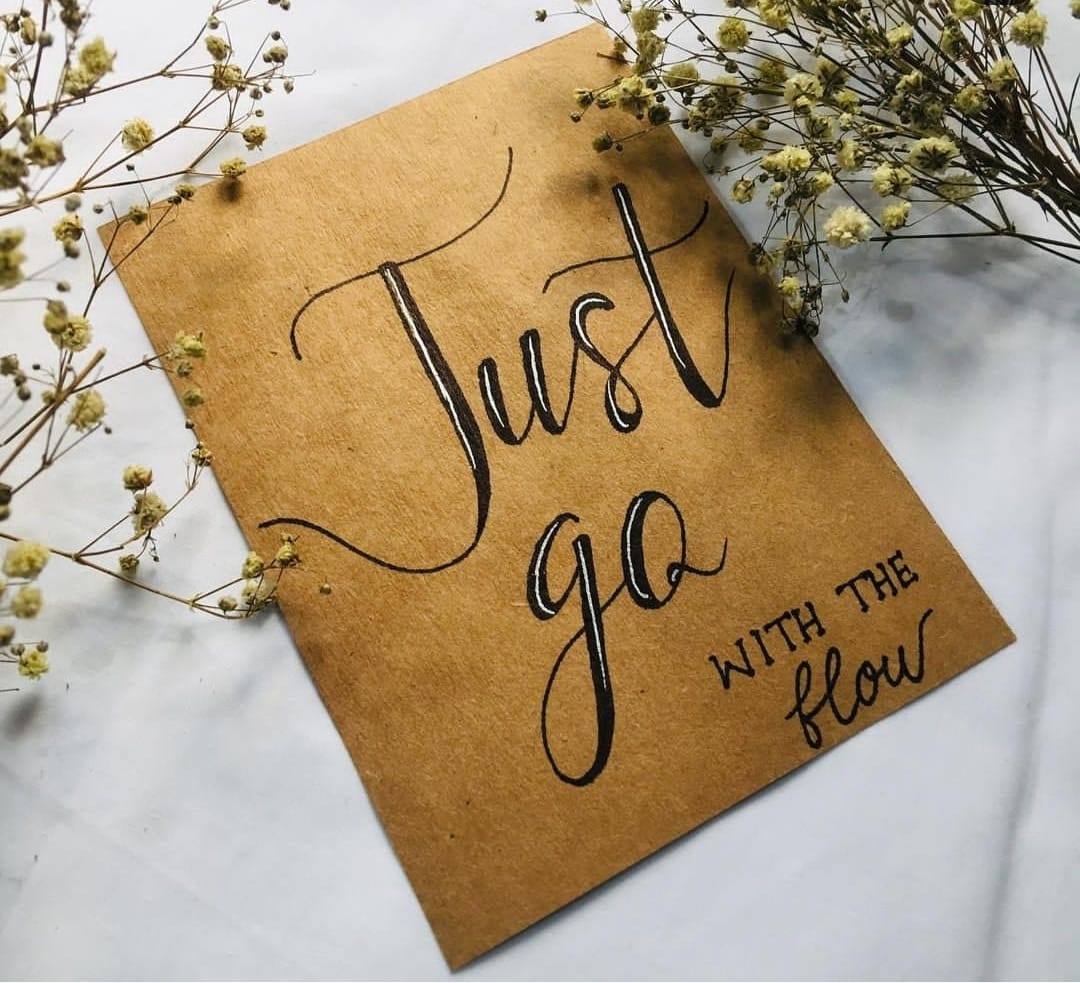 Just
go
WITH THE
flow